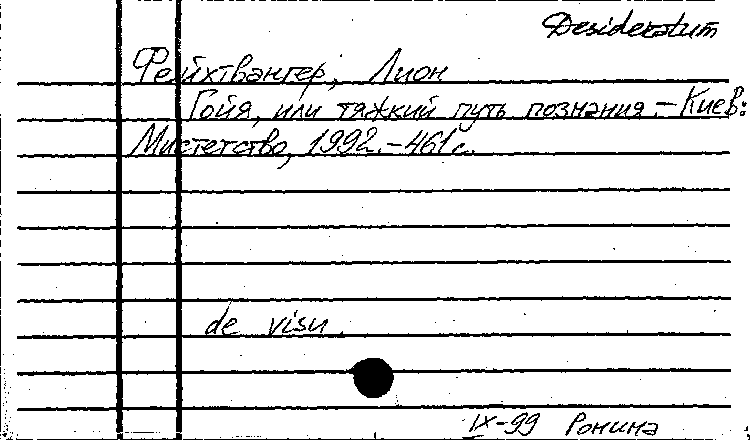 Desideratum
Фейхтвангер, Лион
Гойя, или тяжкий путь познания. – Киев:
Мистетство, 1992. – 461 с.
de visu.
IX-99 Ронина